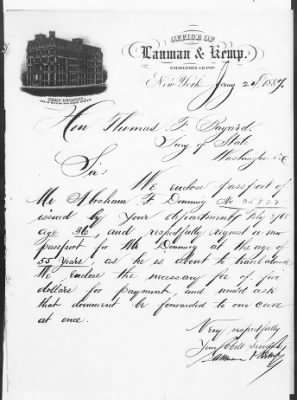 OFFICE OF
Lanman & Kemp.
New York Jany 24 1887.
Hon Thomas F. Bayard.
Secy of State
Washington D.C
Sir:
We enclose passport of
Mr Abraham F Downing No
issued by Your department
age 36, and respectfully request a new
passport for Mr Downing at the age of
55 Years, as he is about to travel abroad.
We enclose the necessary fee of five
dollars for payment, and would ask
that document be forwarded to our care
at once.
Very respectfully
Your Obdt Servants
Lanman & Kemp